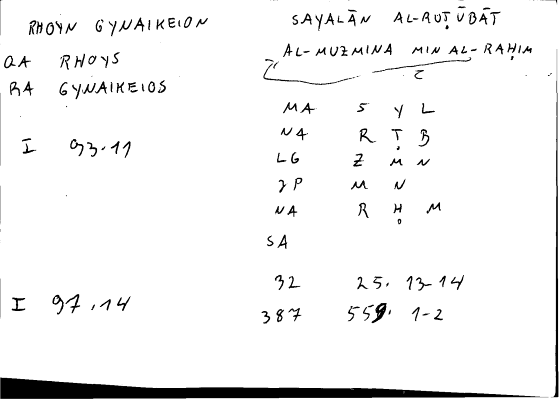 RHOYN GYNAIKEION
QA RHOYS
RA GYNAIKEIOS
I 93.11
I 97.14
SAYALĀN AL-RUṬŪBĀT
AL-MUZMINA MIN AL-RAḤIM
C
MA S Y L
NA R Ṭ B
LG Z M N
YP M N
NA R Ḥ M
SA
32 25. 13-14
387 559. 1-2